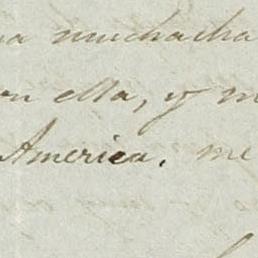 muchacha
ella, y
America. me